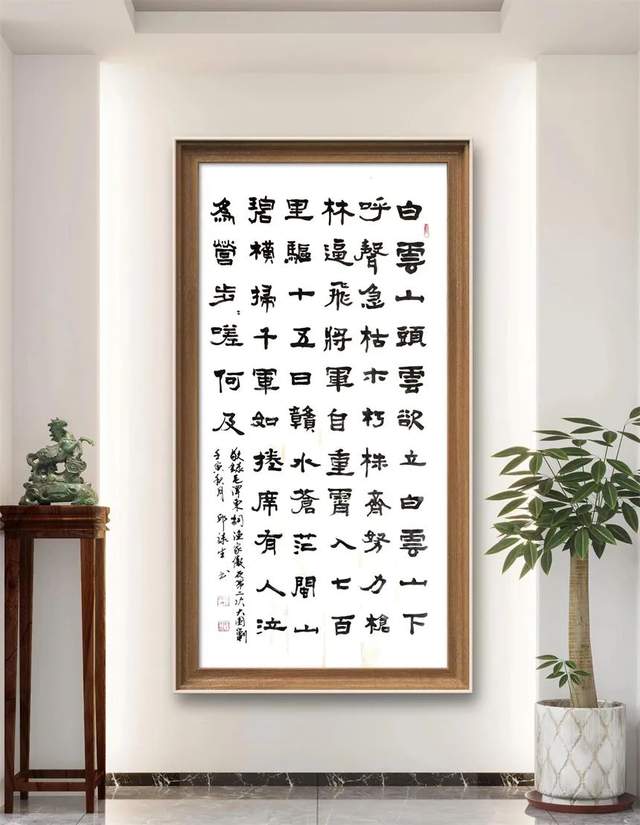 白雲山頭雲欲立白雲山下
呼聲急枯木朽株齊努力槍
林逼飛將軍自重霄入七百
里驅十五日贛水蒼茫閩山
碧橫掃千軍如捲席有人泣
為營步〻嗟何及
敬錄毛澤東詞漁家傲反第二次大圍剿
壬寅秋月 邱 生書